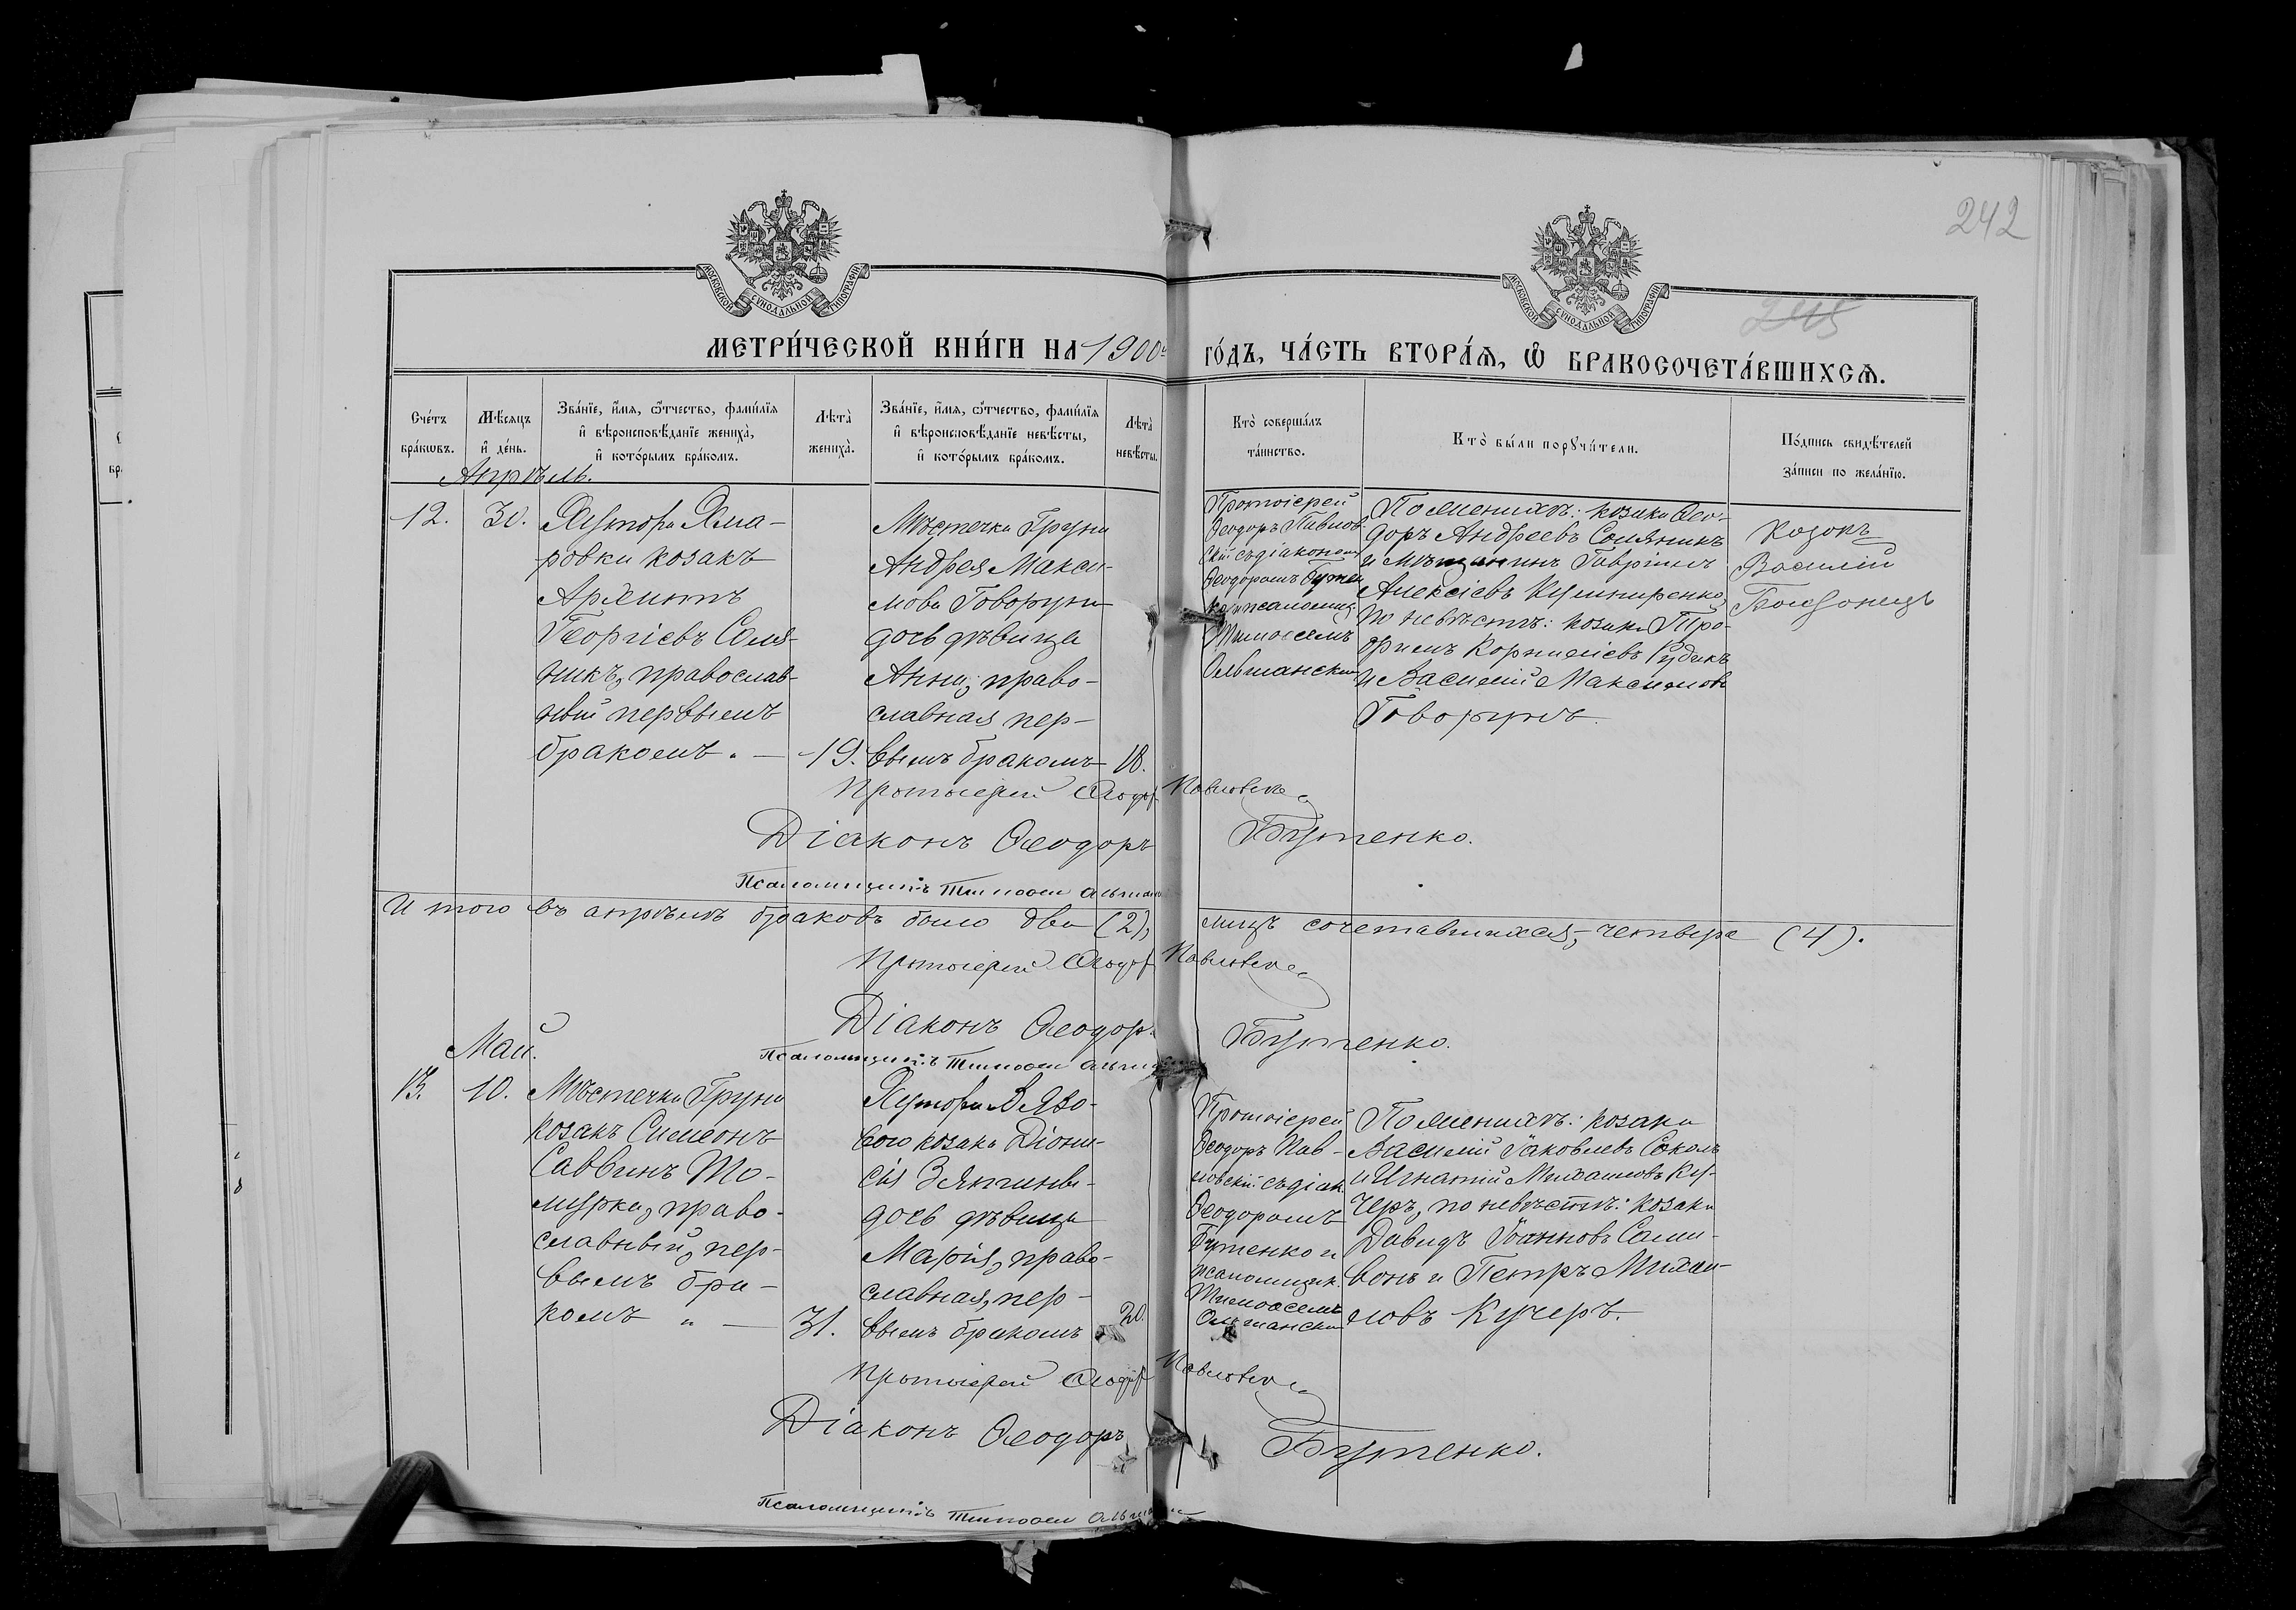 242
245
МОСКОВСКОЙ СѴНОДАЛЬНОЙ ТИПОГРАФІИ
МОСКОВСКОЙ СѴНОДАЛЬНОЙ ТИПОГРАФІИ
МЕТРИ́ЧЕСКОЙ КНИ́ГИ НА 1900й ГО́ДЪ, ЧА́СТЬ ВТОРА́Ѧ, Ѽ БРАКОСОЧЕТА́ВШИХСѦ.
Сче́тъ бра́кѡвъ.
Мѣ́сяцъ и҆ де́нь.
Зва́нїе, и҆́мѧ, ѻ҆́тчество, фами́лїѧ и҆ вѣроисповѣ́данїе жениха̀, и҆ кото́рымъ бра́комъ.
Лѣта̀ жениха̀.
Зва́нїе, и҆́мѧ, ѻ҆́тчество, фами́лїѧ и҆ вѣроисповѣ́данїе невѣ́сты, и҆ кото́рымъ бра́комъ.
Лѣта̀ невѣ́сты.
Кто̀ соверша́лъ та́инство.
Кто̀ бы́ли порꙋчи́тели.
По́дпись свидѣ́телей за́писи по жела́нїю.
Апрѣль.
12.
30.
Хутора Хма-
ровки козакъ
Архиппъ
Георгіевъ Соля-
никъ, православ-
ный первымъ
бракомъ. —
19.
Мѣстечка Груни
Андрея Макси-
мова Говоруна
дочь дѣвица
Анна, право-
славная пер-
вымъ бракомъ
18.
Протоіерей
Ѳеодоръ Павлов-
скій съ діакономъ
Ѳеодоромъ Бутен
ко и псаломщ.
Тимоѳеемъ
Ольшанским
По женихѣ: козаки Ѳео-
доръ Андреевъ Соляникъ
и мѣщанинъ Гавріилъ
Алексіевъ Кушниренко,
по невѣстѣ: козаки Тро-
фимъ Корниліевъ Рудикъ
и Василій Максимовъ
Говорунъ.
Козакъ
Василій
Протоіерей Ѳеодоръ Павловскій
Діаконъ Ѳеодоръ Бутенко.
Псаломщикъ Тимоѳей Ольшанскі
Итого въ апрѣлѣ браковъ было два (2), лицъ сочетавшихся, четверо (4).
Протоіерей Ѳеодоръ Павловскій
Діаконъ Ѳеодоръ Бутенко.
Псаломщикъ Тимоѳей Ольшанс
Май.
13.
10.
Мѣстечка Груни
козакъ Симеонъ
Саввинъ То-
мурка, право-
славный, пер-
вымъ бра-
комъ " —
31.
Хутора Вязо-
вого козака Діони-
сія Зяпчинъ-
дочь дѣвица
Марія, право-
славная, пер-
вымъ бракомъ
20.
Протоіерей
Ѳеодоръ Пав-
ловскій съ діак.
Ѳеодоромъ
Бутенко и
псаломщик.
Тимоѳеемъ
Ольшански
По женихѣ: козаки
Василій Іаковлевъ Соколъ
и Игнатій Михаиловъ Ку-
черъ, по невѣстѣ: козаки
Давидъ Іоанновъ Сали-
вонъ и Петръ Михаи-
ловъ Кучеръ.
Протоіерей Ѳеодоръ Павловскій
Діаконъ Ѳеодоръ Бутенко.
Псаломщикъ Тимоѳей Ольшанскі